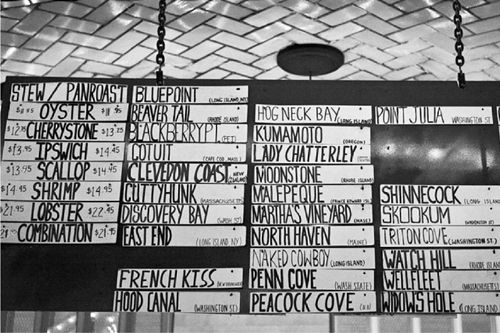 STEW / PANROAST
OYSTER
CHERRYSTONE $13.25
IPSWICH $14.45
$13.45 SCALLOP $14.45
$14.45 SHRIMP $14.95
$21.95 LOBSTER $22.45
COMBINATION
BLUEPOINT (LONG ISLAND, NY)
BEAVER TAIL (RHODE ISLAND)
BLACKBERRY PT. (PEI)
COTUIT (CAPE COD, MASS)
CLEVEDON COAST NEW ZEALAND
CUTTYHUNK (MASSACHUSETTS)
DISCOVERY BAY (WASH ST)
EAST END (LONG ISLAND, NY)
FRENCH KISS (NEW BRUNSWICK)
HOOD CANAL (WASHINGTON ST)
HOG NECK BAY (LONG ISLAND)
KUMAMOTO (OREGON)
LADY CHATTERLEY
MOONSTONE (RHODE ISLAND)
MALEPEQUE (PRINCE EDWARD ISL)
MARTHAS VINEYARD (MASS)
NORTH HAVEN (MAINE)
NAKED COWBOY (LONG ISLAND)
PENN COVE (WASH STATE)
PEACOCK COVE
POINT JULIA WASHINGTON ST
SHINNECOCK (LONG ISLAND)
SKOOKUM (WASHINGTON ST)
TRITON COVE (WASHINGTON ST)
WATCH HILL (RHODE ISL)
WELLFLEET (MASSACHUSETTS)
WIDOWS HOLE (LONG ISLAND)